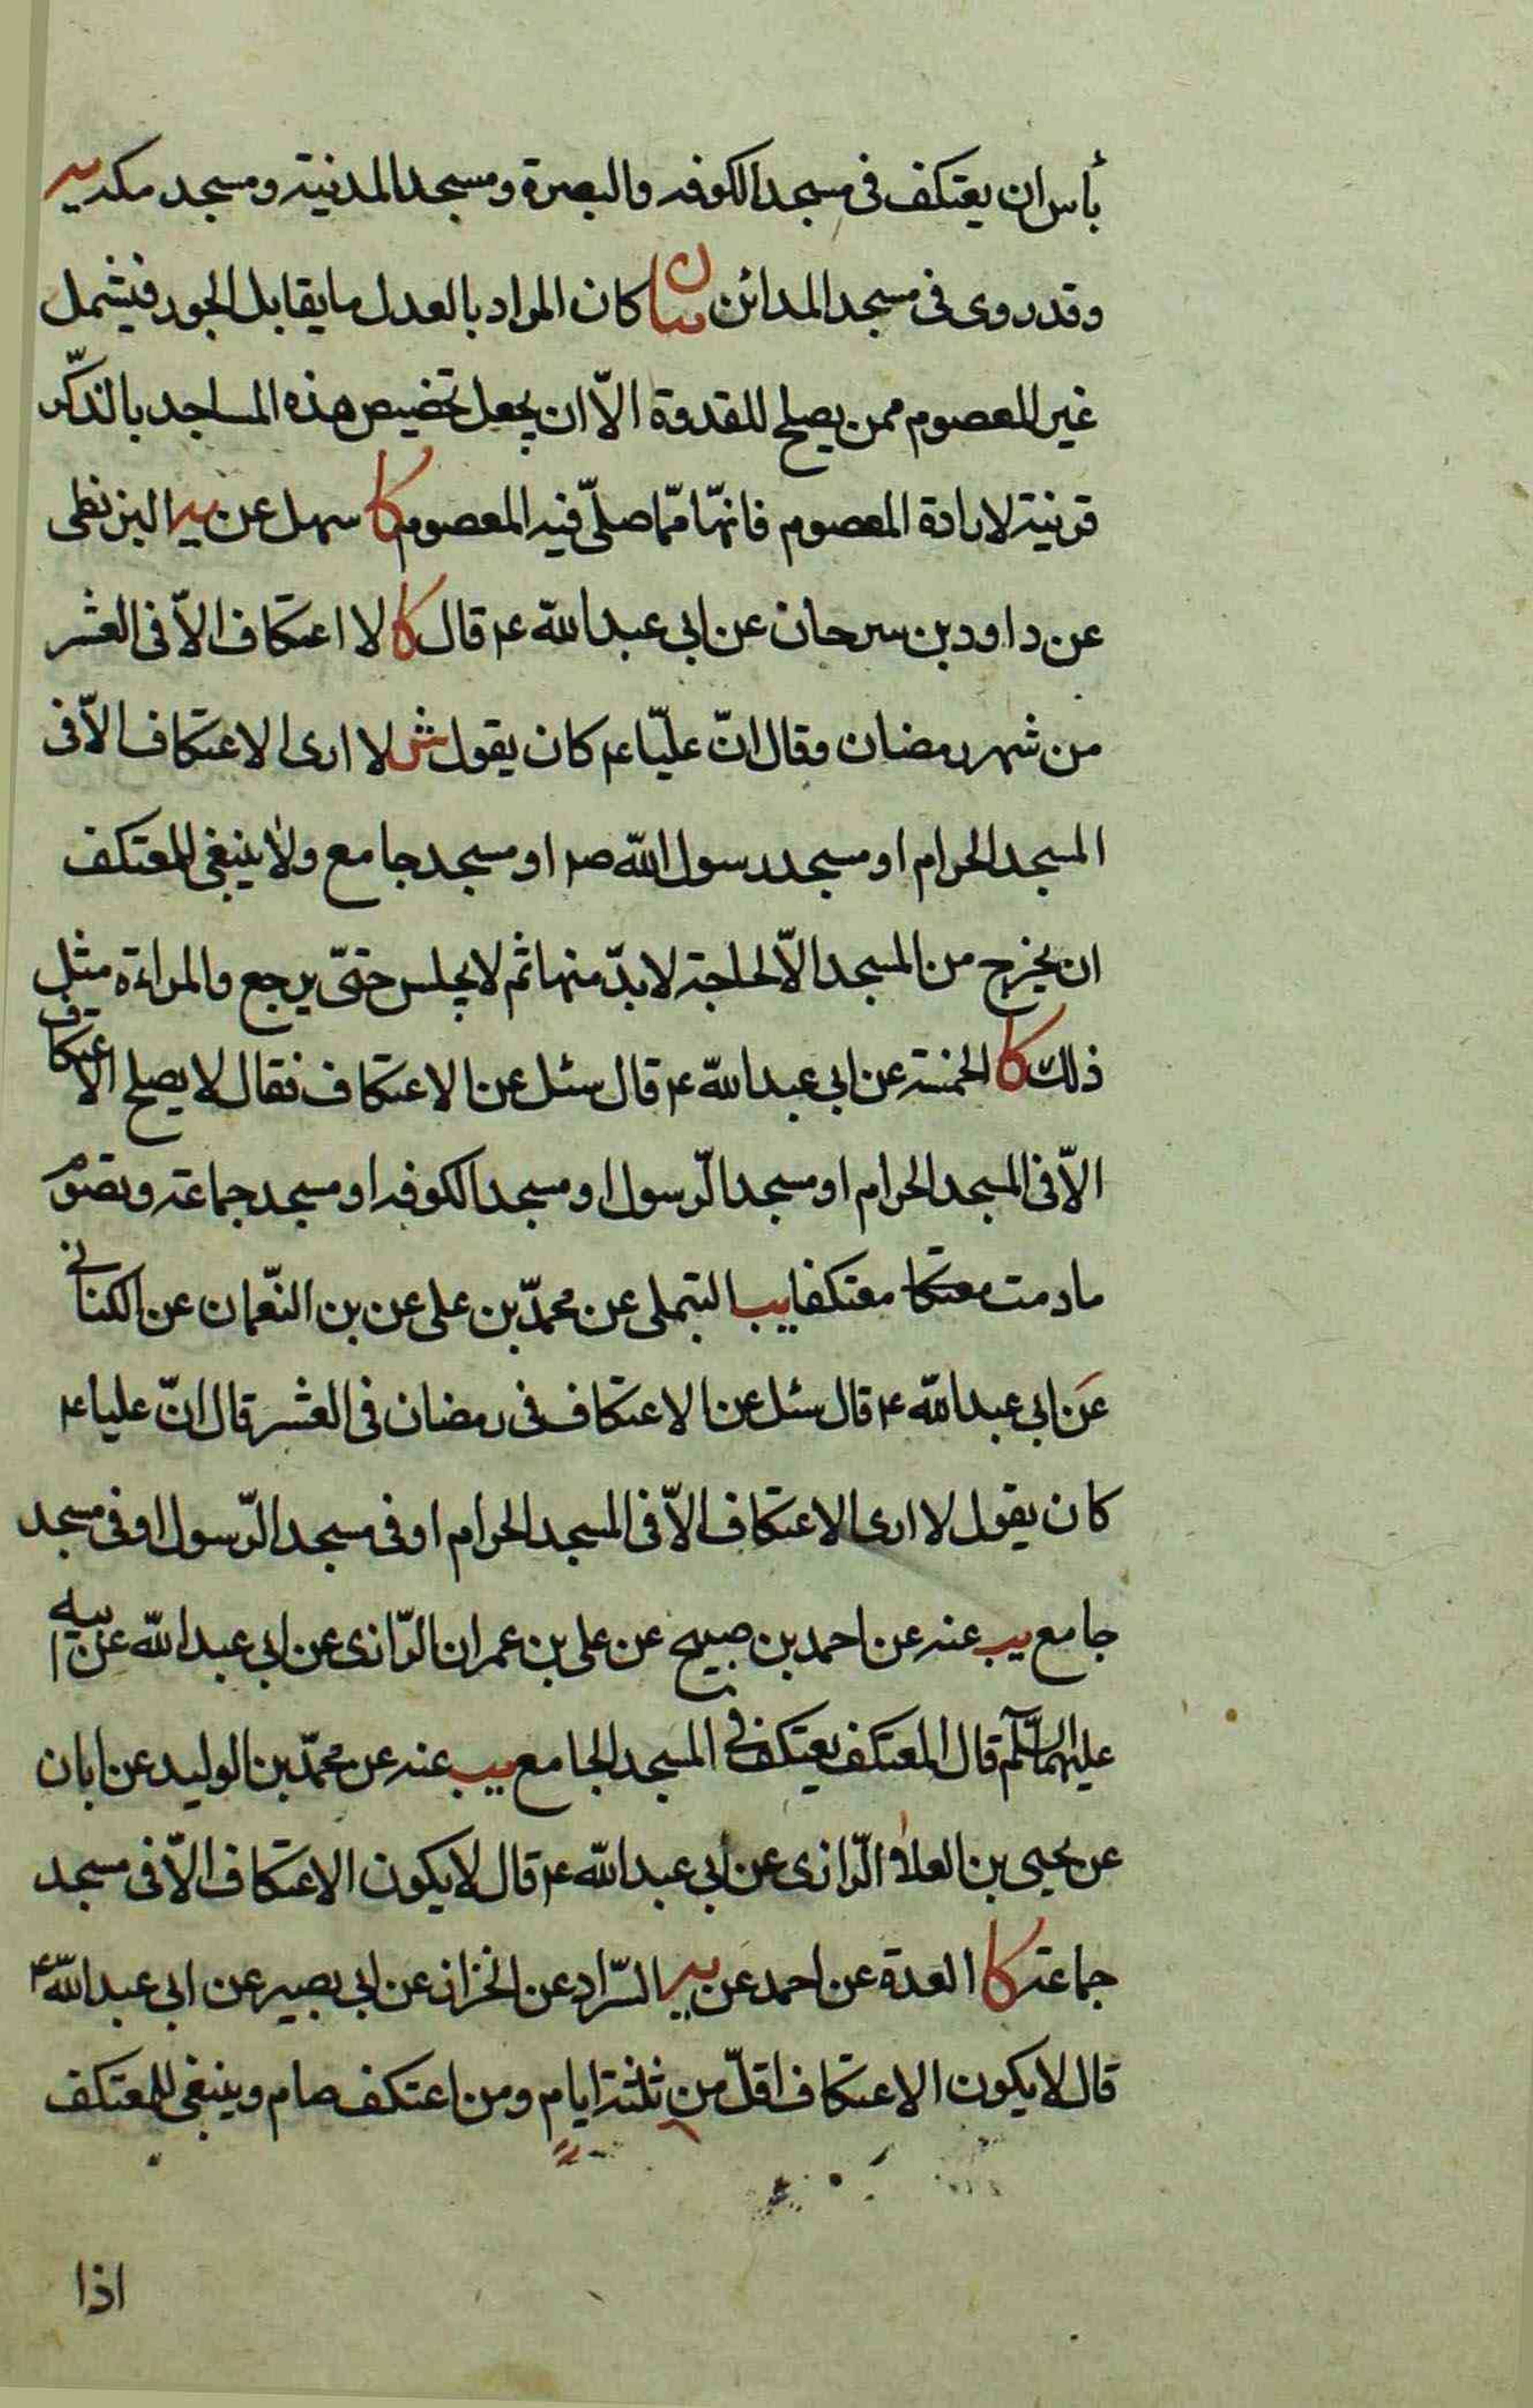 بأس ان يعتكف فى مسجد الكوفه والبصرة ومسجد المدنية ومسجد مكه يه
وقد روى فى مسجد المدائن بيان كان المراد بالعدل ما يقابل الجور فيشمل
غير المعصوم ممن يصلح للقدوة الّا ان يجعل تخصيص هذه المساجد بالذّكر
قرنية لارادة المعصوم فانهّا ممّا صلّى فيه المعصوم كا سهل عن يه البزنطى
عن داود بن سرحان عن ابى عبد الله ع قال كا لا اعتكاف الّا فى العشر
من شهر رمضان وقال انّ عليّا ع كان يقول ش لا ارى الاعتكاف الّا فى
المسجد الحرام او مسجد رسول الله ص او مسجد جامع ولا ينبغى للمعتكف
ان يخرج من المسجد الّا لحاجة لا بدّ منها ثم لا يجلس حتىّ يرجع والمراءة مثل
ذلك كا الخمسة عن ابى عبد الله ع قال سئل عن الاعتكاف فقال لا يصلح الاعتكاف
الّا فى المسجد الحرام او مسجد الرّسول او مسجد الكوفه او مسجد جماعة وتصوم
ما دمت معتكا معتكفا يب التيملى عن محمدّ بن على عن بن النّعمان عن الكنانى
عن ابى عبد الله ع قال سئل عن الاعتكاف فى رمضان فى العشر قال انّ عليا ع
كان يقول لا ارى الاعتكاف الّا فى المسجد الحرام او فى مسجد الرّسول او فى مسجد
جامع يب عنه عن احمد بن صبيح عن على بن عمران الرّازى عن ابى عبد الله عن ابيه
عليهما السّلم قال المعتكف يعتكف فى المسجد الجامع يب عنه عن محمدّ بن الوليد عن ابان
عن يحيى بن العلاء الرّازى عن أبى عبد الله ع قال لا يكون الاعتكاف الّا فى مسجد
جماعة كا العدة عن احمد عن يه السّراد عن الخزاز عن ابى بصير عن ابى عبد الله ع
قال لا يكون الاعتكاف اقلّ من ثلثة ايام ومن اعتكف صام وينبغى للمعتكف
اذا